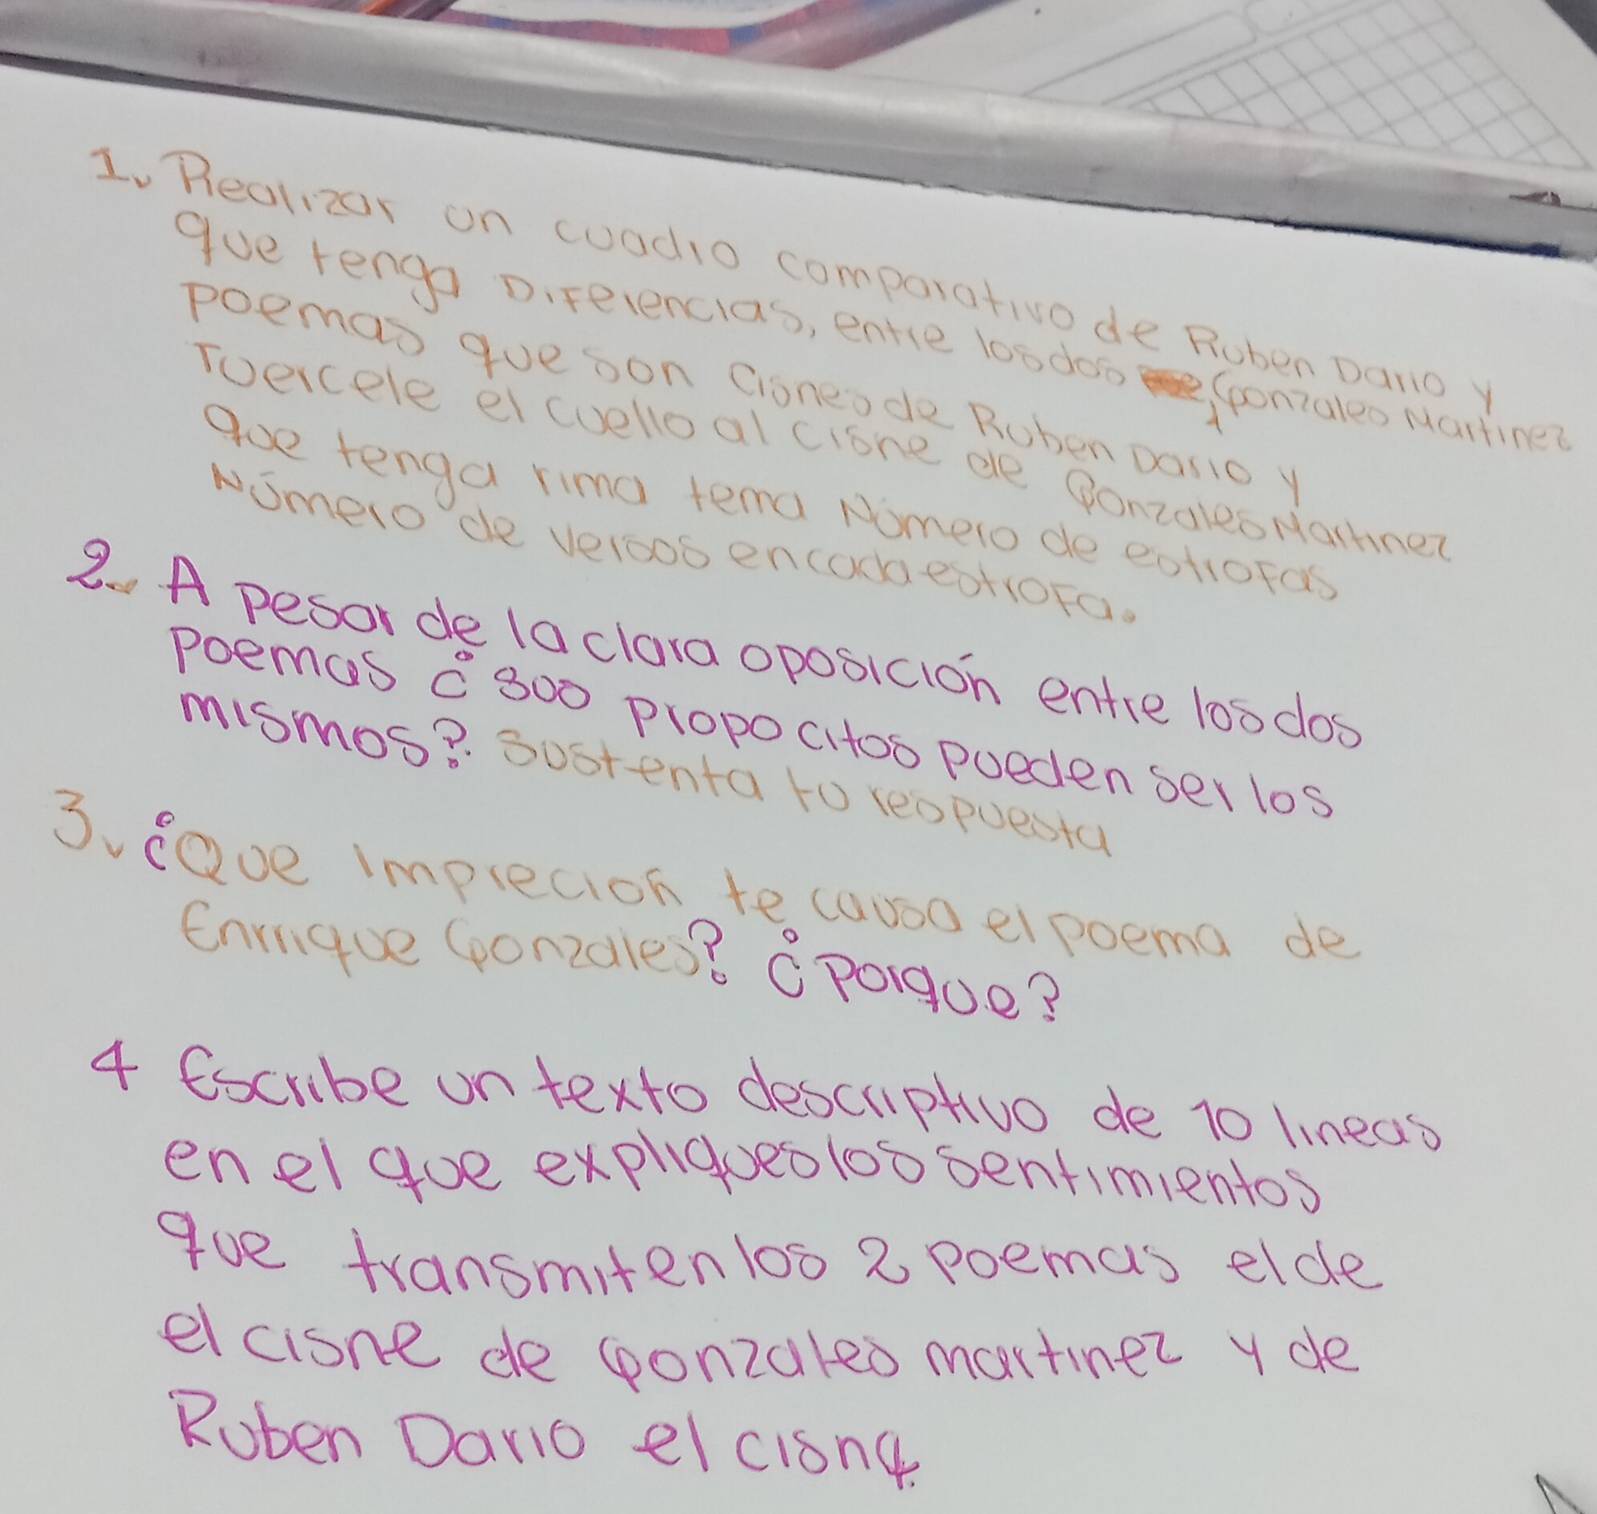 1. Realizar un cuadro comparativo de Ruben Dario y
que tenga Diferencias, entre los dos Gonzales Martinez
poemas que son cisnes de Ruben Dario y
Tuercele el cuello al cisne de Gonzales Martinez
que tenga rima tema Número de estrofas
Número de versos encada estrofa.
2. A pesar de la clara oposición entre los dos
poemas ¿sus propocitos pueden ser los
mismos? Sustenta tu respuesta
3. ¿Que imprecion te causa el poema de
Enrrique Gonzales? ¿porque?
4 Escribe un texto descriptivo de 10 lineas
en el que expliques los sentimientos
que transmiten los 2 poemas el de
el cisne de gonzales martinez y de
Ruben Dario el cisne.